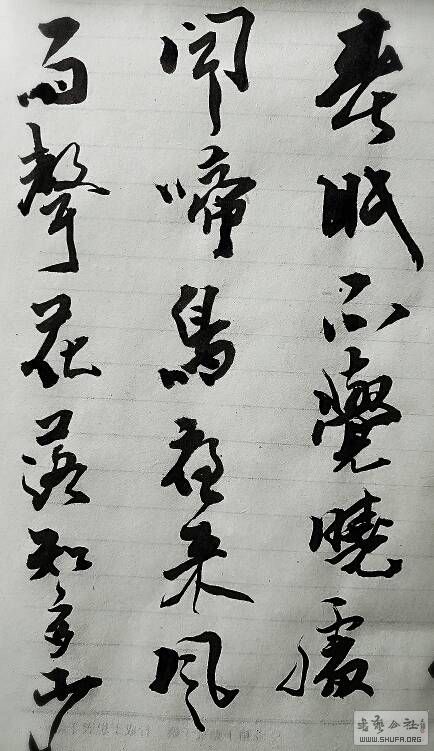 春眠不覺曉處
聞啼鳥夜来風
雨聲花落知多少
書藝公社
WWW.SHUFA.ORG